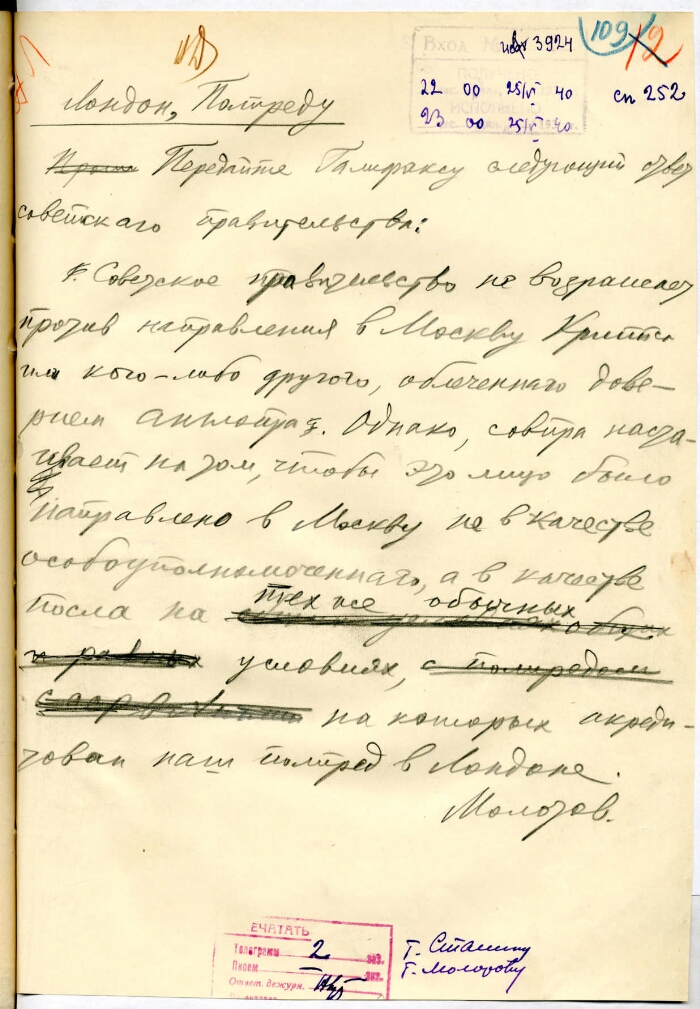 исх 3924
109
12
Вход №
22 00 25/VI 40
сп 252
ИСПОЛНЕНО
23 00 25/VI 40
Лондон, Полпреду
Прошу Передайте Галифаксу следующий ответ
советского правительства:
Советское правительство не возражает
против направления в Москву Криппса
или кого-либо другого, облеченного дове-
рием англопра-ва. Однако, совпра наста-
ивает на том, чтобы это лицо было
направлено в Москву не в качестве
особоуполномоченного, а в качестве
посла на тех же обычных
и равных условиях, с полпредом
СССР
на которых акреди-
тован наш полпред в Лондоне.
Молотов.
ПЕЧАТАТЬ
Телеграмм 2 экз.
Писем – экз.
Ответ. дежурн.
т. Сталину
т. Молотову